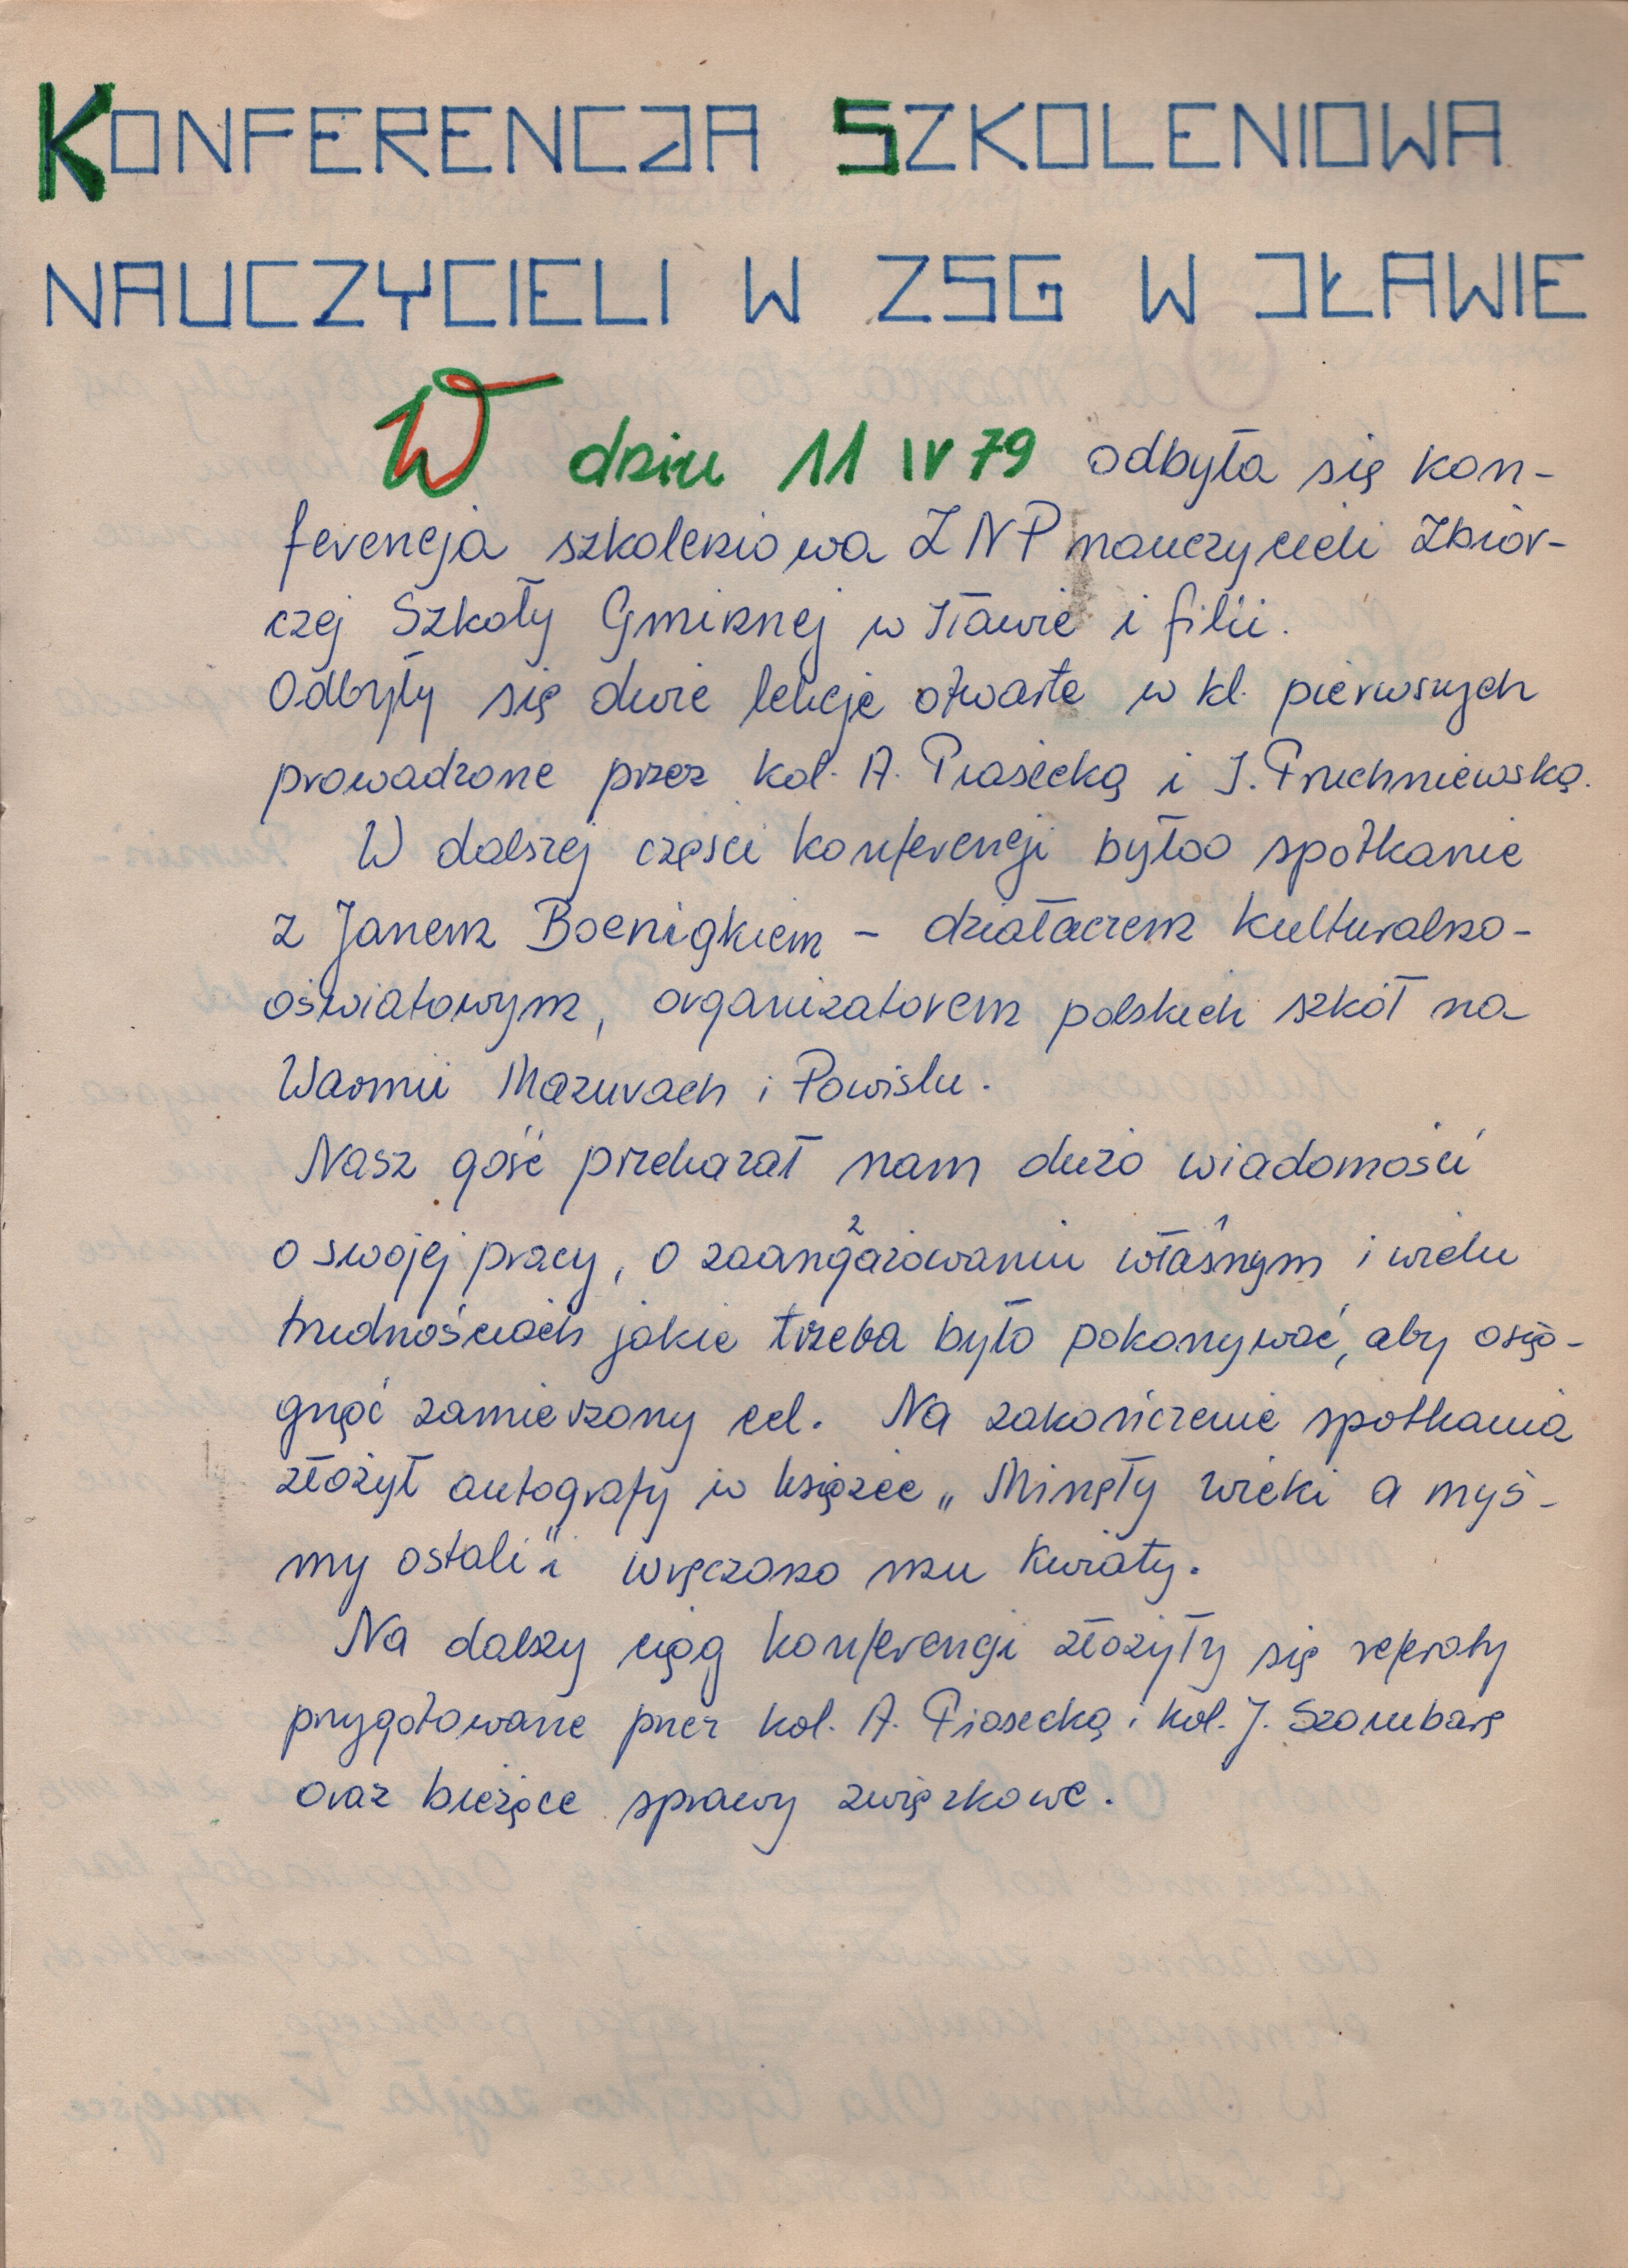 KONFERENCJA SZKOLENIOWA
NAUCZYCIELI W ZSG W IŁAWIE
W dniu 11 IV 79 odbyła się kon-
ferencja szkoleniowa ZNP nauczycieli Zbior-
czej Szkoły Gminnej w Iławie i filii.
Odbyły się dwie lekcje otwarte w kl. pierwszych
prowadzone przez kol. A. Piasecką i J. Pruchniewską.
W dalszej części konferencji byłoo spotkanie
z Janem Boenigkiem – działaczem kulturalno-
oświatowym, organizatorem polskich szkół na
Warmii Mazurach i Powislu.
Nasz gość przekazał nam dużo wiadomości
o swojej pracy, o zaangażowaniu 2 własnym 1 i wielu
trudnościach jakie trzeba było pokonywać, aby osią-
gnąć zamierzony cel. Na zakończenie spotkania
złożył autografy w książce „Minęły wieki a myś-
my ostali" i wręczono mu kwiaty.
Na dalszy ciąg konferencji złożyły się referaty
przygotowane przez kol. A. Piasecką i kol. J. Szombarę
oraz bieżące sprawy związkowe.